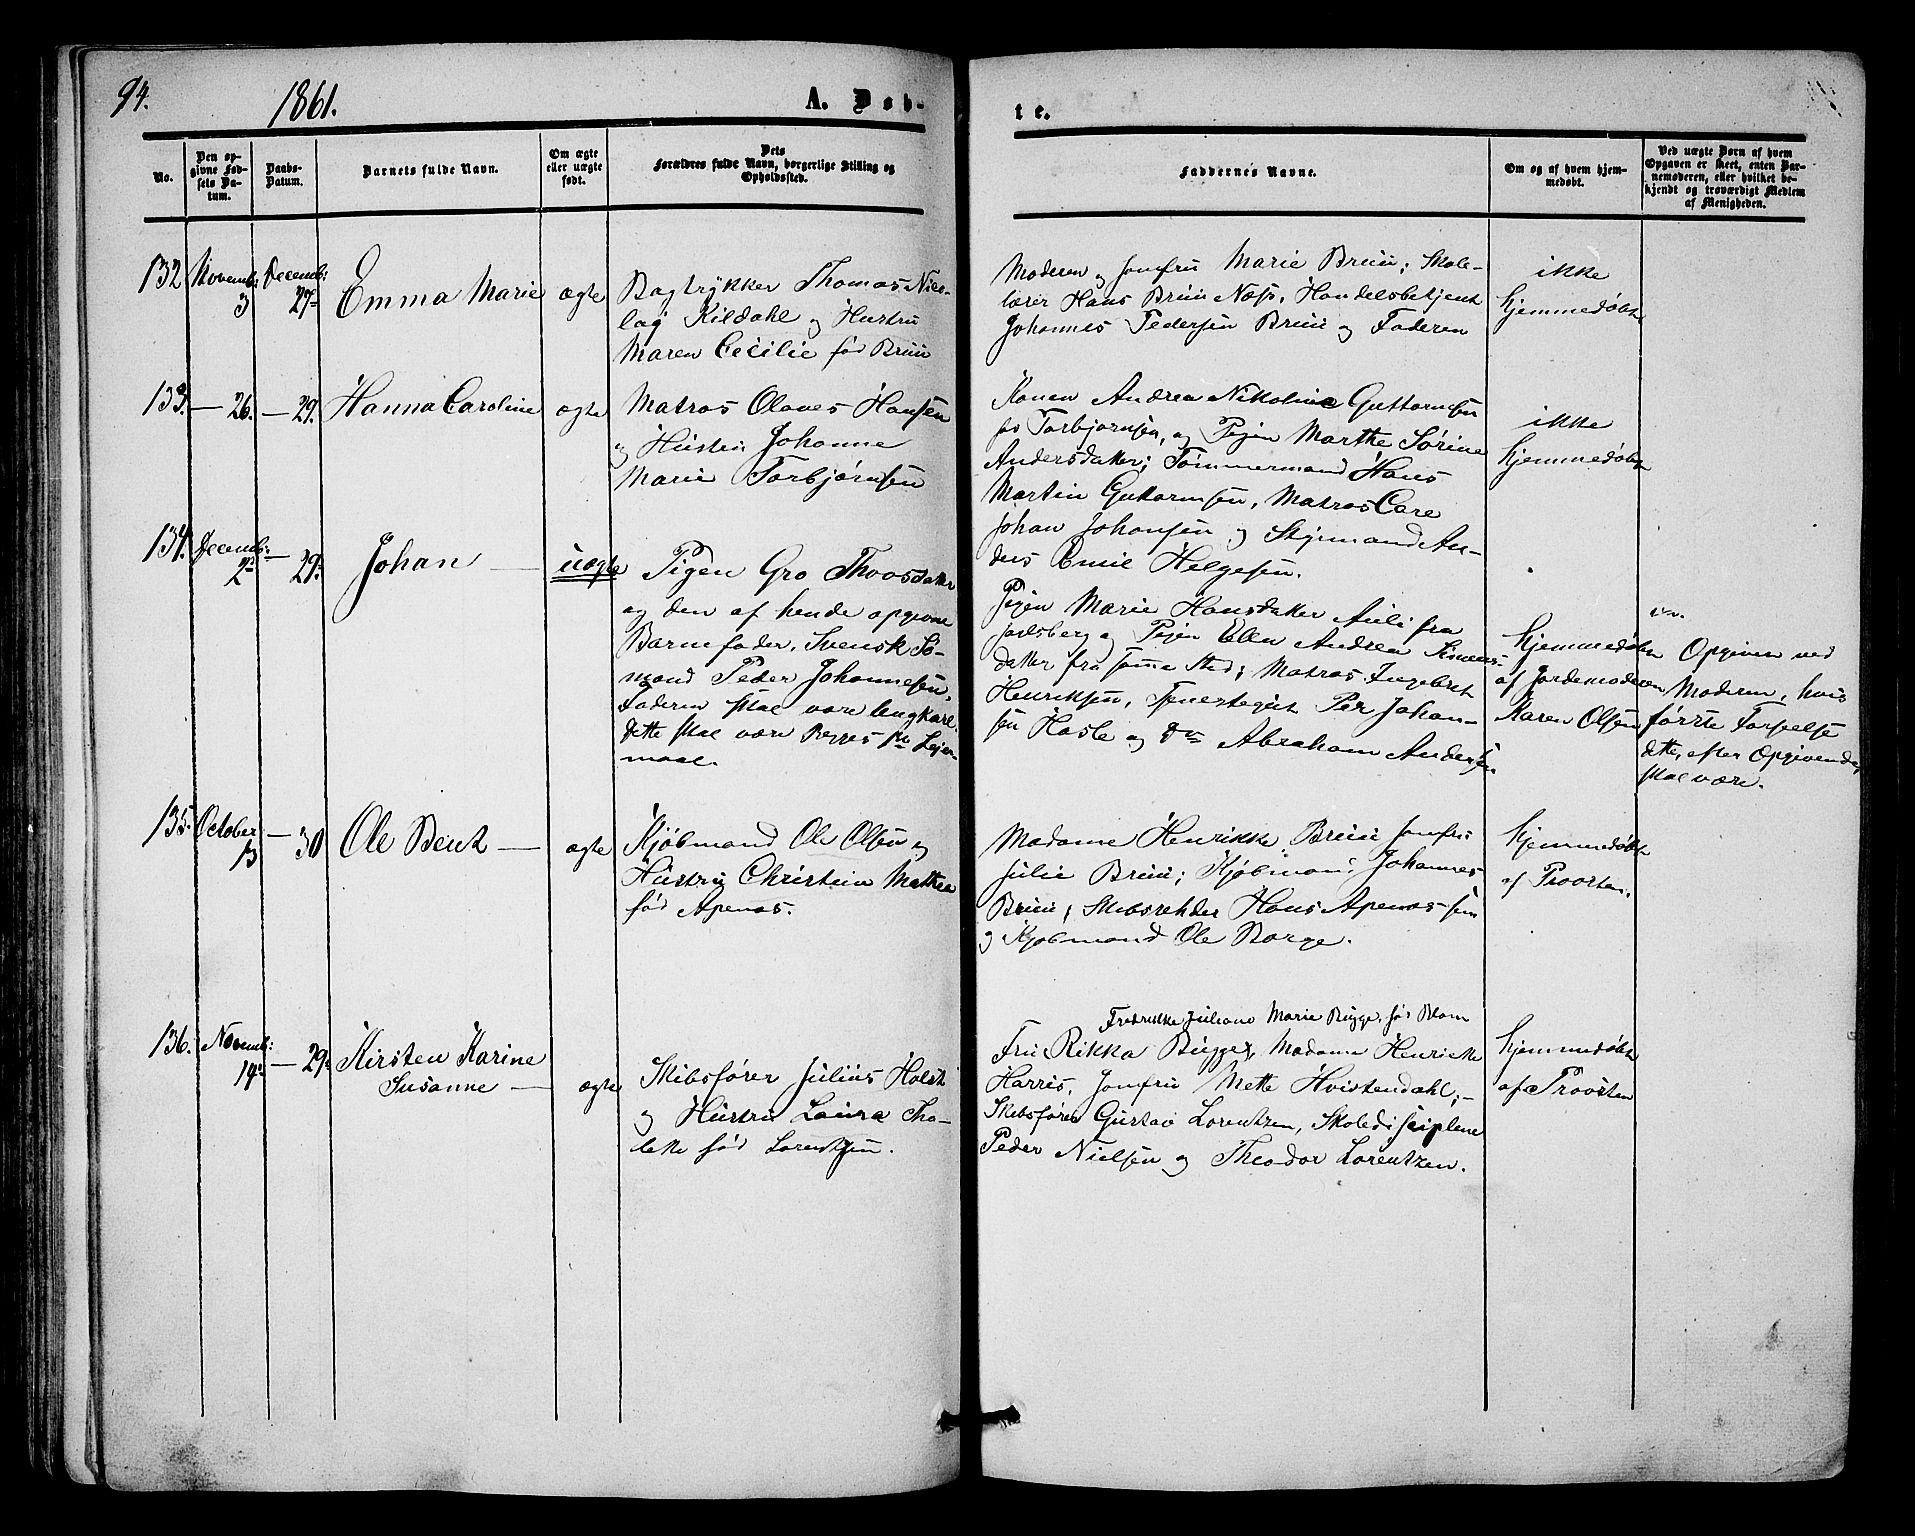 94.
1861.
A. Døb-
te.
No.
Den op-
givne Fød-
sels Da-
tum.
Daabs-
Datum.
Barnets fulde Navn.
Om ægte
eller uægte
født.
Dets
Forældres fulde Navn, borgerlige Stilling og
Opholdssted.
Faddernes Navne.
Om og af hvem hjem-
medøbt.
Ved uægte Børn af hvem
Opgaven er skeet, enten Bar-
nemoderen, eller hvilket be-
kjendt og troværdigt Medlem
af Menigheden.
132 Novemb: 3 Decemb: 27de Emma Marie ægte
Bogtrykker Thomas Nico-
laj Kildahl og Hustru
Maren Cecilie fød Bruu
Moderen og Jomfru Marie Bruu; Skole-
lærer Hans Bruu Næss, Handelsbetjent
Johannes Pedersen Bruu og Faderen
ikke
hjemmedøbt
133. — 26. — 29. Hanna Caroline ægte
Matros Olaves Hansen
og Hustru Johanne
Marie Torbjørnsen
Konen Andrea Nikoline Guttormsen
fød Torbjørnsen, og Pigen Marthe Sørine
Andersdatter; Tømmermand Hans
Martin Guttormsen, Matros Care
Johan Johansen og Styrmand An-
ders Emil Helgesen.
ikke
hjemmedøbt
134. Decemb: 2den — 29. Johan — uægte
Pigen Gro Thorsdatter
og den af hende opgivne
Barnefader, Svensk Sø-
mand Peder Johannesen,
Faderen skal være Ungkarl,
dette skal være Begges 1ste Leier-
maal.
Pigen Marie Hansdatter Auli fra
Jarlsberg og Pigen Ellen Andrea
datter fra samme Sted; Matros Ingebret
Henriksen, Tjenestegut Per Johan-
sen Hasle og do Abraham Andersen
hjemmedøbt
af Jordemoderen
Karen Olsen
Opgiven ved
Moderen, hvis
første Forseelse
dette, efter Opgivende,
skal være.
135. October 13 — 30 Ole Bent — ægte
Kjøbmand Ole Olsen og
Hustru Christine Mathea
fød Apenas.
Madame Henrikke Bruu Jomfru
Julie Bruu; Kjøbmand Johannes
Bruu; Skibsrehder Hans Apenas sen
og Kjøbmand Ole Borge.
hjemmedøbt
af Provsten.
136. Novemb: 14de — 29de Kirsten Karine
Susanne — ægte
Skibsfører Julius Holst
og Hustru Laura Tho-
lette fød Lorentzen.
Fredrikke Juliane Marie Bugge, fød Blom
Fru Rikka Bugge, Madame Henrikke
Harris, Jomfru Mette Hvistendahl; —
Skibsfører Gustav Lorentzen, Skoledisciplene
Peder Nielsen og Theodor Lorentzen.
hjemmedøbt
af Provsten